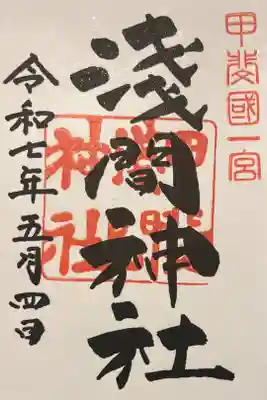 甲斐國一宮
淺間神社
令和七年五月四日